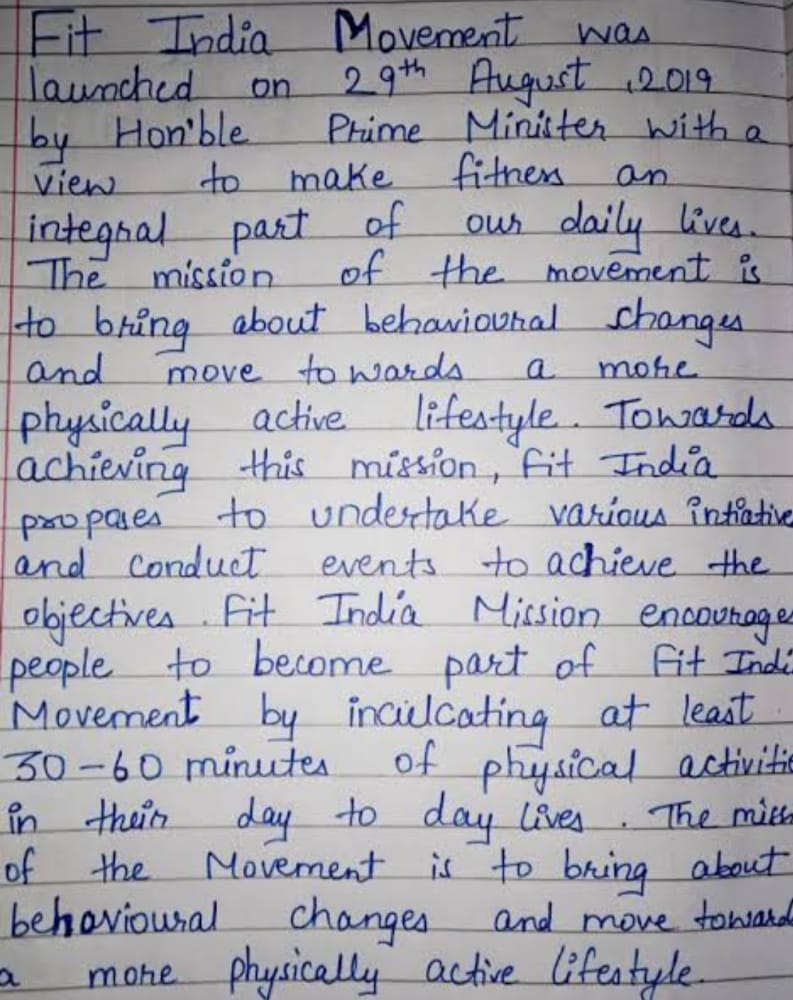 Fit India Movement was
launched on 29th August ,2019
by Hon'ble Prime Minister with a
view to make fitness an
integral part of our daily lives.
The mission of the movement is
to bring about behavioural changes
and move towards a more
physically active lifestyle. Towards
achieving this mission, Fit India
proposes to undertake various intiative
and conduct events to achieve the
objectives. Fit India Mission encourage
people to become part of Fit Indi
Movement by inculcating at least
30-60 minutes of physical activitie
in their day to day lives. The miss
of the Movement is to bring about
behavioural changes and move toward
a more physically active lifestyle.